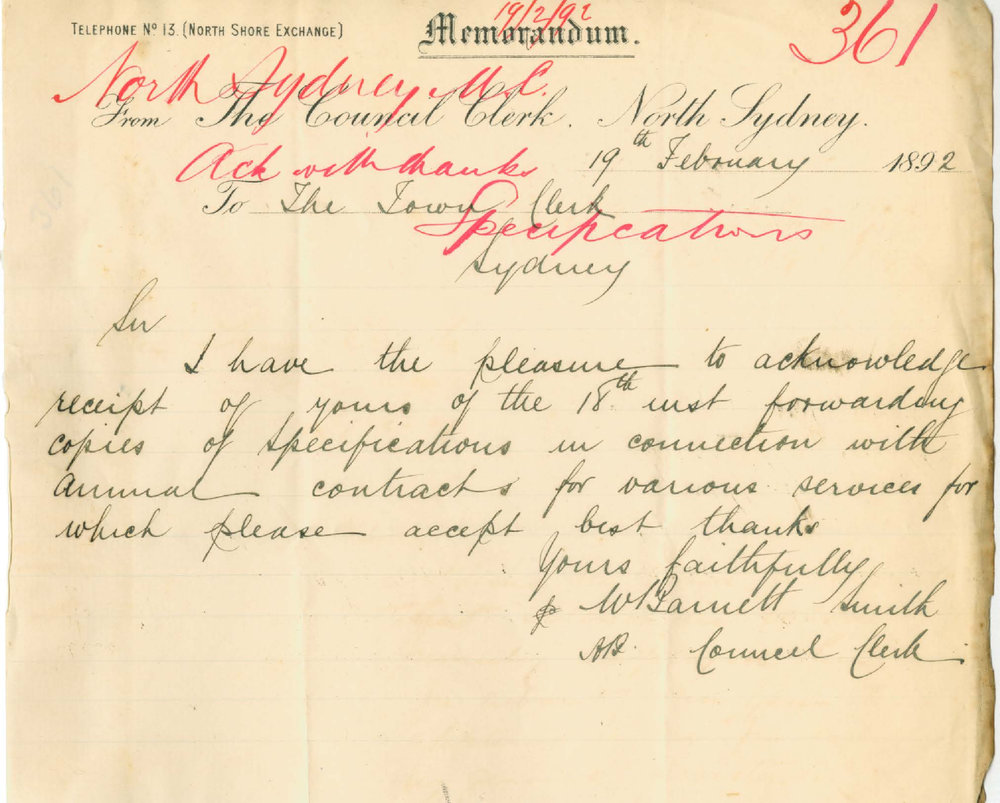 19/2/92
TELEPHONE Nº 13. (NORTH SHORE EXCHANGE)
Memorandum.
361
North Sydney M.C.
From The Council Clerk. North Sydney.
Ack with thanks
19th February 1892
To The Town Clerk
Specifications
Sydney
Sir
I have the pleasure to acknowledge
receipt of yours of the 18th inst forwarding
copies of specifications in connection with
annual contracts for various services for
which please accept best thanks
Yours faithfully
p W Barnett Smith
Council Clerk